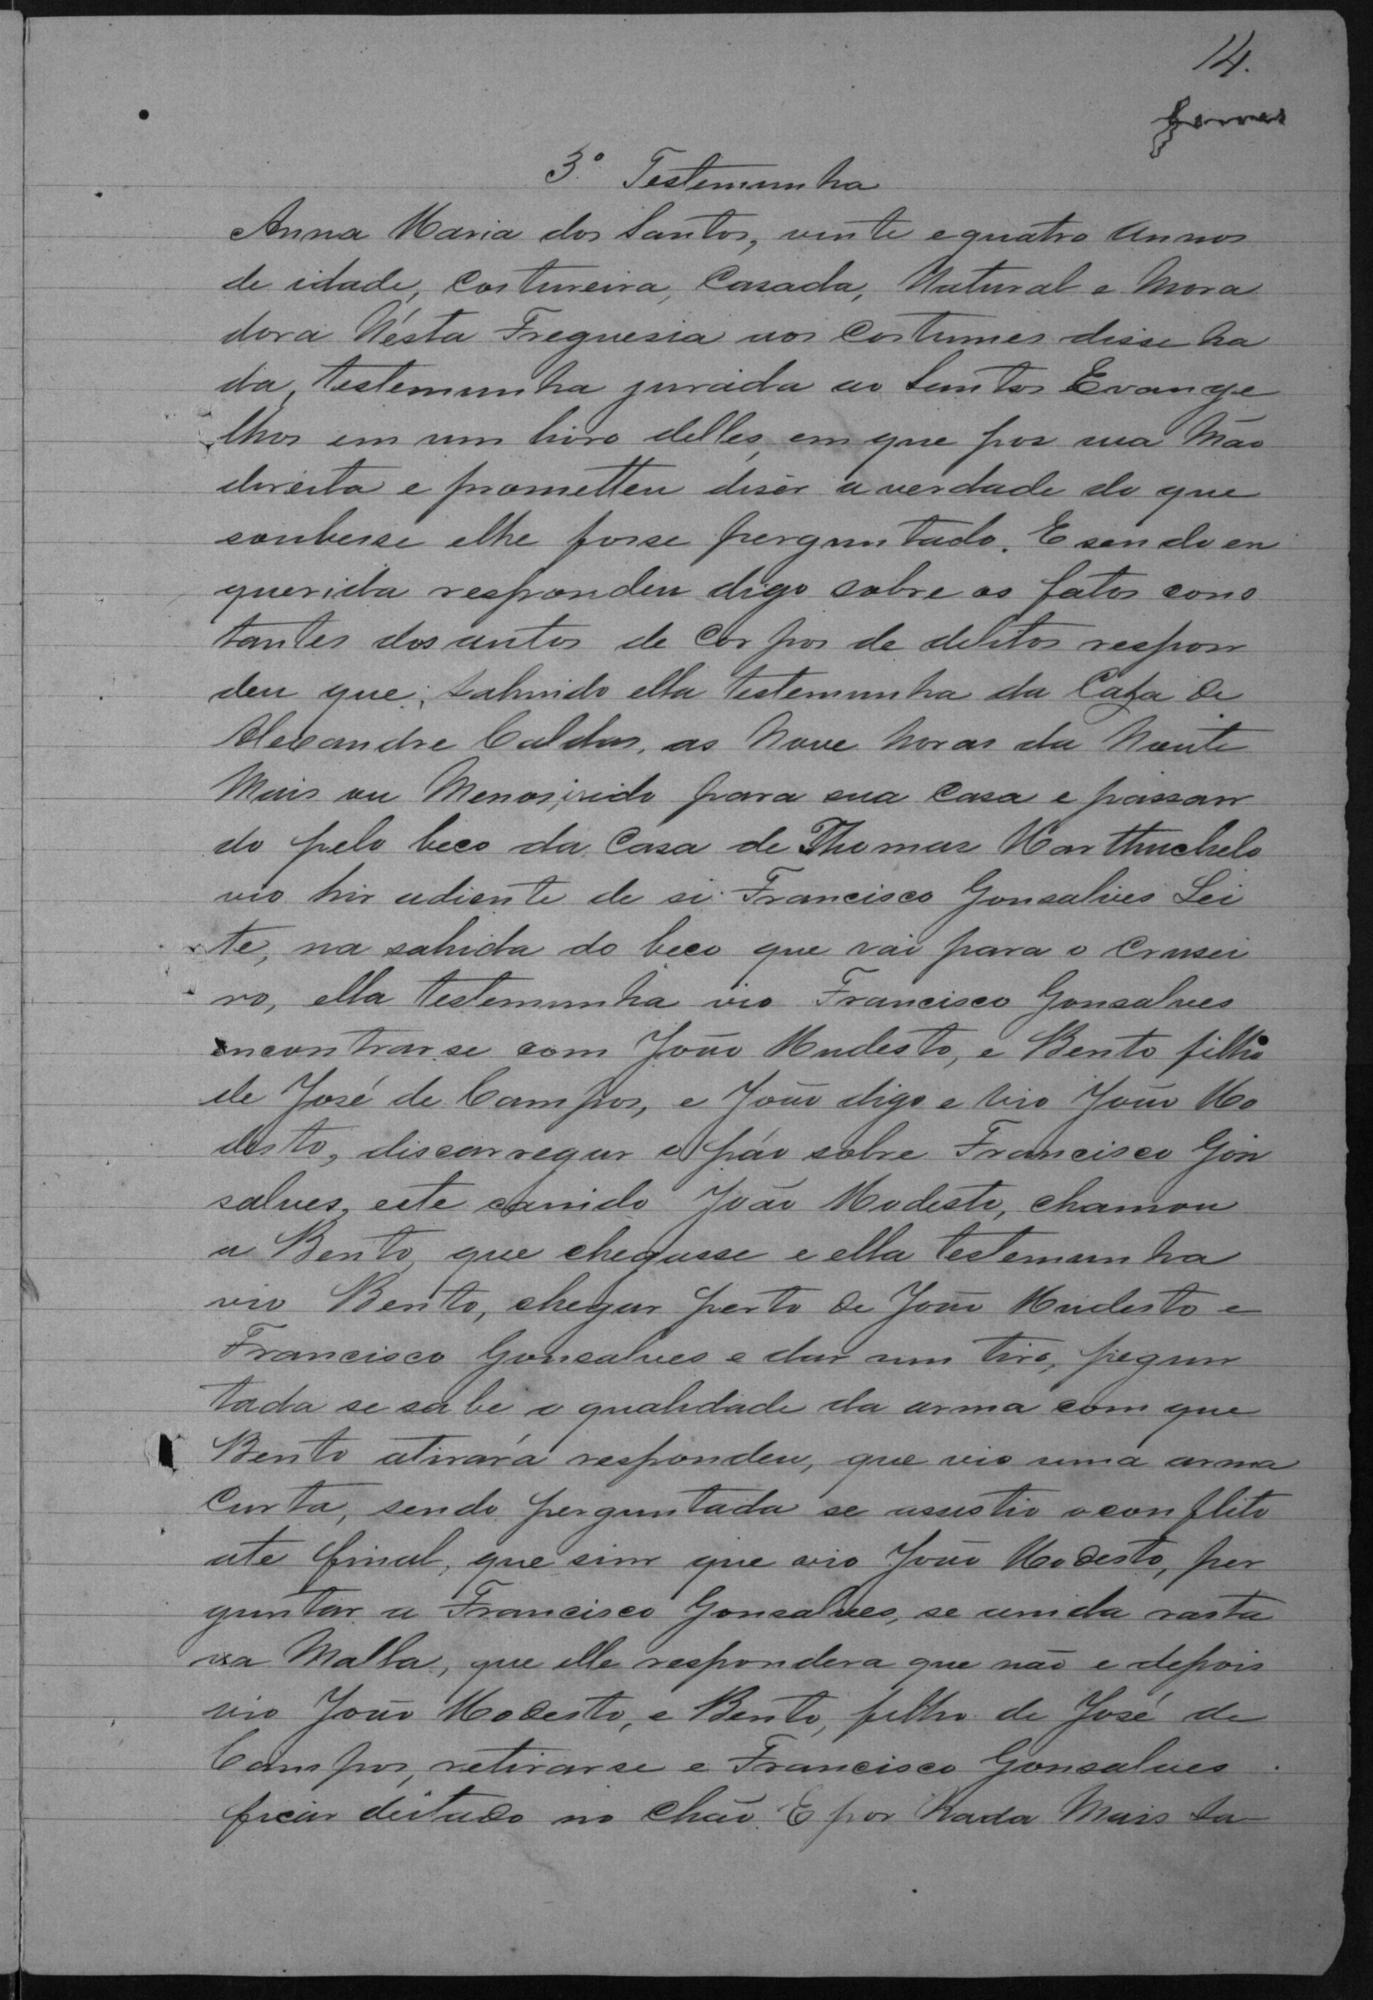 14.
3º Testemunha
Anna Maria dos Santos, vinte e quatro annos
de idade, Costureira, Casada, Natural e Mora
dora Nésta Freguesia aos Costumes disse na
da, testemunha jurada ao Santos Evange
lhos em um livro delles, em que pos sua Mão
direita e prometteu disêr a verdade do que
soubesse e lhe fosse perguntado. E sendo en
querida respondeu digo sobre os fatos cons
tantes dos autos de Corpos de delitos respon
deu que; sahindo ella testemunha da Casa de
Alexandre Caldas, as Nove horas da Noute
Mais ou Menos, indo para sua casa e passan
do pelo beco da Casa de Thomas Marthuchelo
vio hir adiente de si Francisco Gonsalves Lei
te, na sahida do beco que vai para o Crusei
ro, ella testemunha vio Francisco Gonsalves
encontrar se com João Mudesto, e Bento filho
de José de Campos, e João digo e vio João Mo
desto, discarregar o páo sobre Francisco Gon
salves, este caindo João Modesto, chamou
a Bento, que chegasse e ella testemunha
vio Bento, chegar perto de João Mudesto e
Francisco Gonsalves e dar um tiro, pegun
tada se sabe a qualidade da arma com que
Bento atirára respondeu, que vio uma arma
Curta, sendo perguntada se assistio o conflito
ate final, que sim que vio João Modesto, per
guntar a Francisco Gonsalves, se ainda rasta
va Malla, que elle respondera que não e depois
vio João Modesto, e Bento, filho de José de
Campos, retirarse e Francisco Gonsalves
ficar deitado no Chão. E por Nada Mais sa